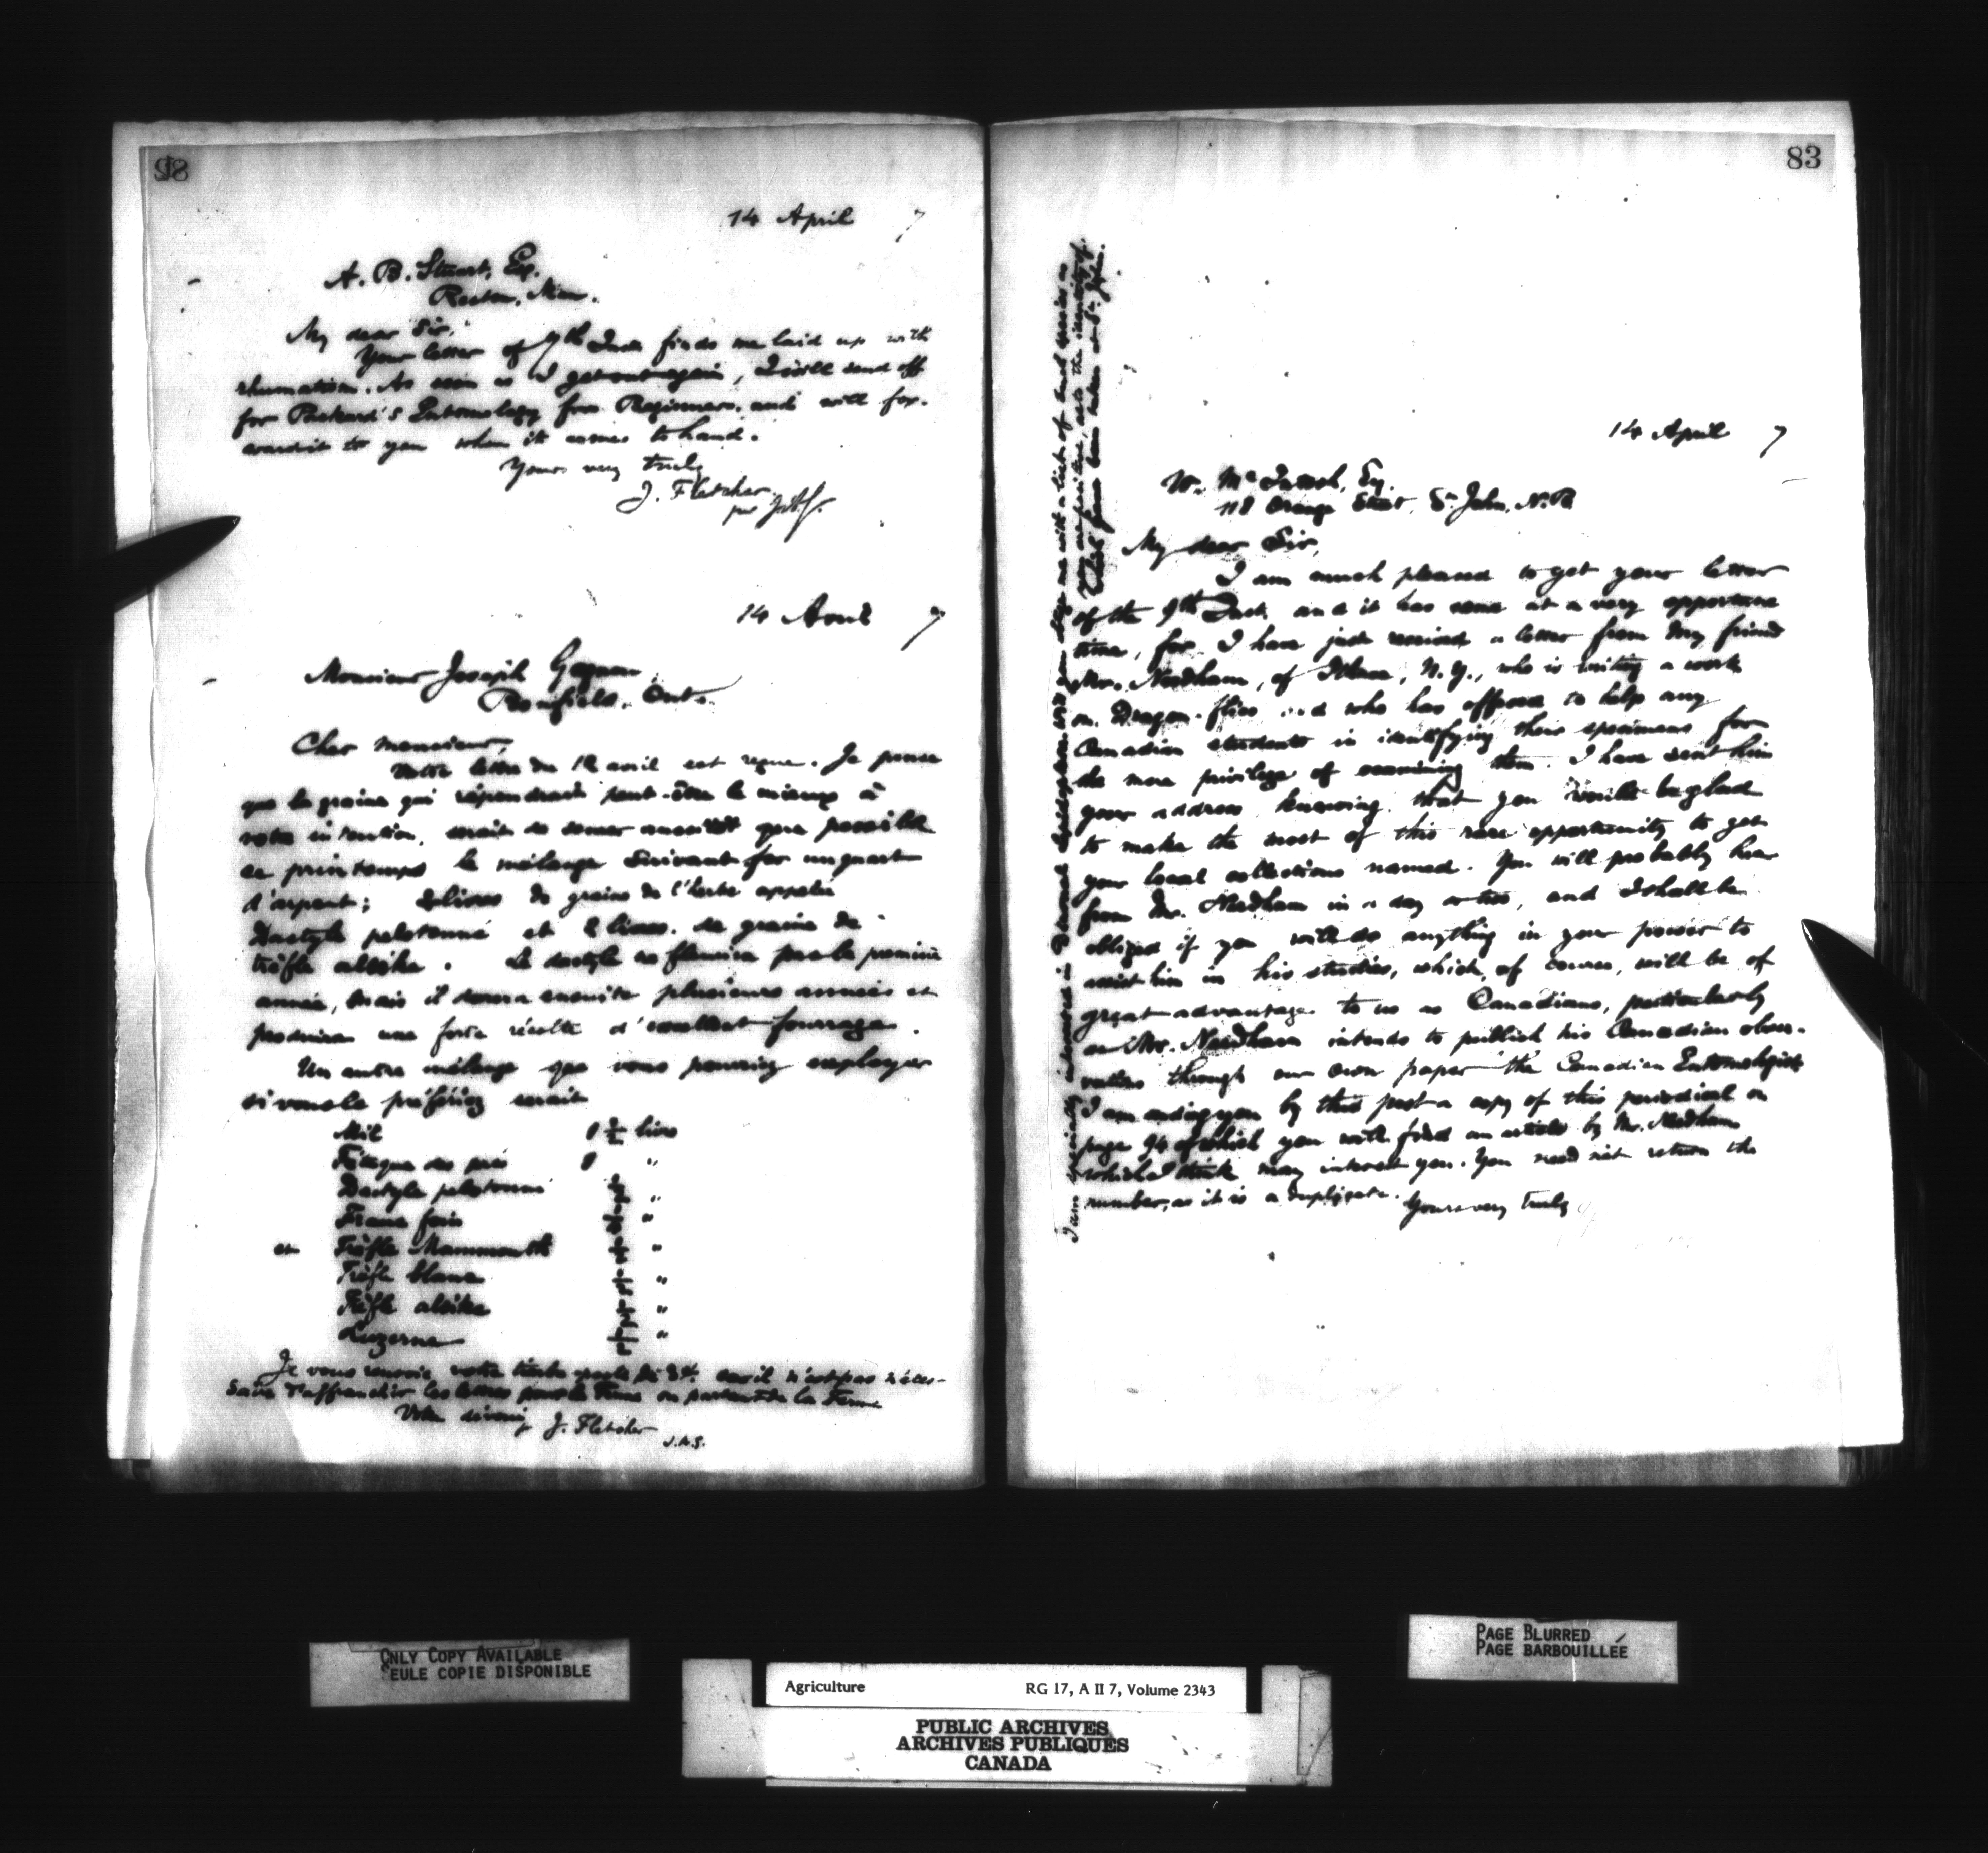 82
14 April 7
A. B. Stuart, Esq.
Reston, Man.
My dear Sir,
Your letter of 9th Inst. finds me laid up with
rheumatism. As soon as I get out again, I will send off
for Packard's Entomology for Beginners, and will for-
ward it to you when it comes to hand.
Yours very truly
J. Fletcher
per J.A.G.
14 Avril 7
Monsieur Joseph
Cher monsieur,
Votre lettre du 12 avril est reçue. Je pense
que la graine qui répondrait peut-être le mieux à
votre intention, serait de semer aussitôt que possible
ce printemps le mélange suivant for un quart
d'arpent; 2 livres de graine de l'herbe appelée
Dactyle pelotonné et 2 livres de graine de
trèfle alsike. Le dactyle ne fleurira pas la première
année, mais il durera ensuite plusieurs années et
produira une forte récolte d'excellent fourrage.
Un autre mélange que vous pourriez employer
si vous le préfériez serait
Mil 1 1/2 livre
Fétuque des prés 1 "
Dactyle pelotonné "
Franc foin "
et Trèfle Mammouth "
Trèfle blanc "
Trèfle alsike "
Luzerne "
Je vous renvoie votre timbre-poste de 3¢. car il n'est pas néces-
saire d'affranchir les lettres pour la Ferme ou partant de la Ferme
Votre dévoué J. Fletcher
J.A.G.
83
14 April 7
W. McIntosh, Esq.
118 Orange Street, St. John, N.B
My dear Sir,
I am much pleased to get your letter
of the 9th Inst. and it has come at a very opportune
time, for I have just received a letter from my friend
Mr. Needham, of Ithaca, N.Y., who is writing a work
on Dragon-flies and who has offered to help any
Canadian students in identifying their specimens for
the mere privilege of examining them. I have sent him
your address knowing that you would be glad
to make the most of this rare opportunity to get
your local collections named. You will probably hear
from Mr. Needham in a day or two, and I shall be
obliged if you will do anything in your power to
assist him in his studies, which, of course, will be of
great advantage to us as Canadians, particularly
as Mr. Needham intends to publish his Canadian obser-
vations through our own paper the Canadian Entomologist
I am sending you by this post a copy of this periodical on
page 94 of which you will find an article by Mr. Needham
which I think may interest you. You need not return the
number, as it is a duplicate. Yours very truly
I am specially interested in Diurnal Lepidoptera. Will you oblige me with a list of such species as
you are positive, are to the vicinity of
which have been taken at St. John.
ONLY COPY AVAILABLE
SEULE COPIE DISPONIBLE
PAGE BLURRED
PAGE BARBOUILLÉE
Agriculture RG 17, A II 7, Volume 2343
PUBLIC ARCHIVES
ARCHIVES PUBLIQUES
CANADA